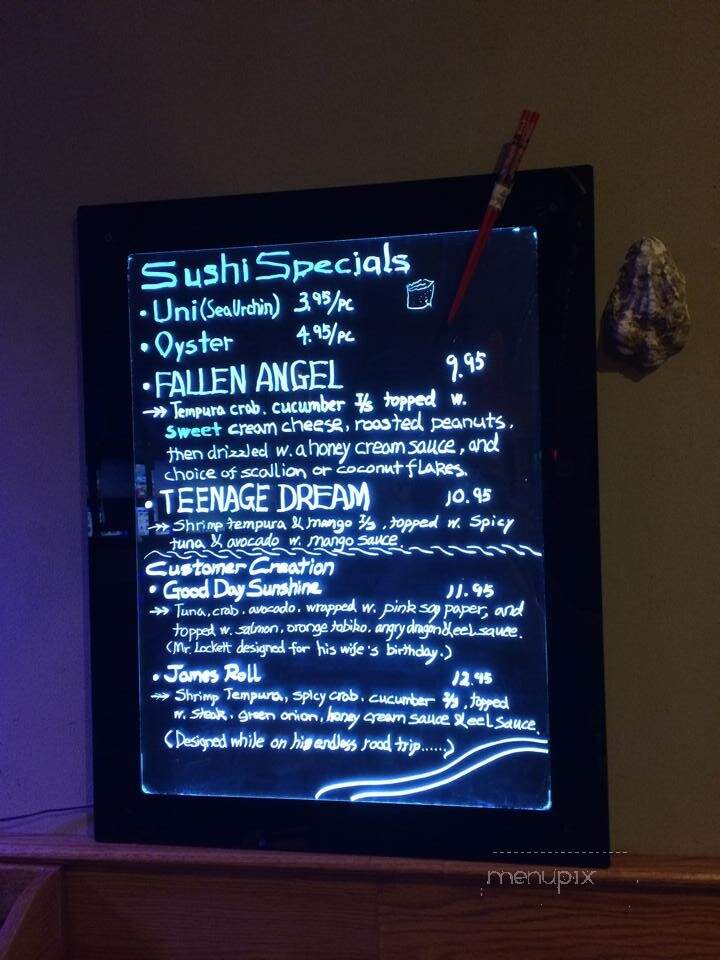 Sushi Specials
• Uni (Sea Urchin) 3.95/PC
• Oyster 4.95/PC
• FALLEN ANGEL 9.95
→ Tempura crab. cucumber I/S topped w.
sweet cream cheese, roasted peanuts,
then drizzled w. a honey cream sauce, and
choice of scallion or coconut flakes.
• TEENAGE DREAM 10.95
→ Shrimp tempura & mango I/S, topped w. Spicy
tuna & avocado w. mango sauce.
Customer Creation
• Good Day Sunshine 11.95
→ Tuna, crab. avocado. wrapped w. pink soy paper, and
topped w. salmon, orange tobiko, angry dragon & eel sauce.
(Mr. Lockett designed for his wife's birthday.)
• James Roll 12.95
→ Shrimp Tempura, spicy crab. cucumber I/S, topped
w. steak. green onion, honey cream sauce & eel sauce.
(Designed while on his endless road trip......)
menupix